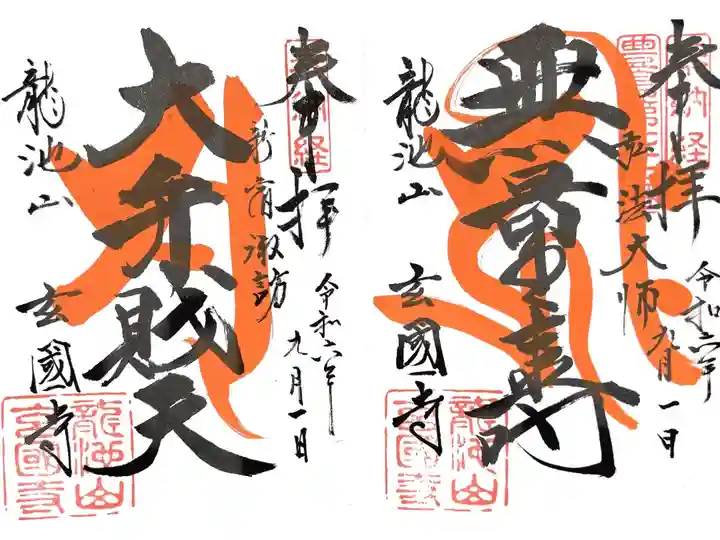 奉拝
令和六年
九月一日
弘法大師
無量壽
龍池山
玄國寺
奉拝
令和六年
九月一日
諏訪
大弁財天
龍池山
玄國寺
龍池山
玄國寺
龍池山
玄國寺